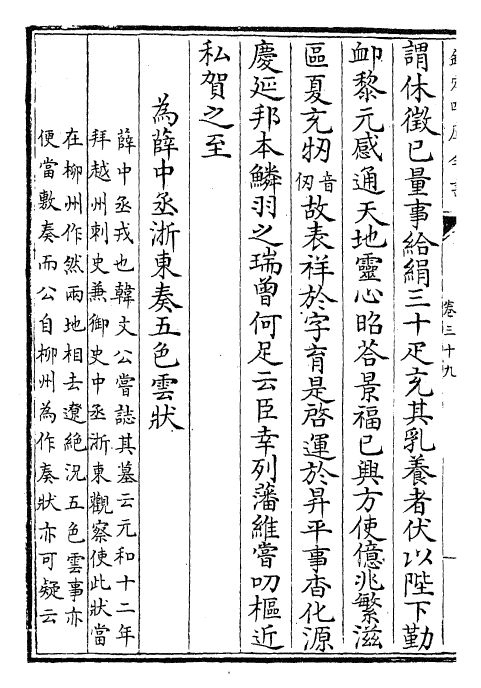 欽定四庫全書
卷三十九
謂休徵已量事給絹三十疋充其乳養者伏以陛下勤
卹黎元感通天地靈心昭荅景福已興方使億兆繁滋
區夏充牣音仞故表祥於字育是啓運於昇平事杳化源
慶延邦本鱗羽之瑞曽何足云臣幸列藩維嘗叨樞近
私賀之至
為薛中丞浙東奏五色雲狀
薛中丞戎也韓文公嘗誌其墓云元和十二年
拜越州刺史兼御史中丞浙東觀察使此狀當
在柳州作然兩地相去遼絶況五色雲事亦
便當敷奏而公自柳州為作奏狀亦可疑云